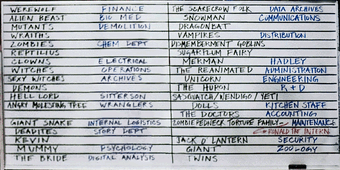 WEREWOLF FINANCE THE SCARECROW FOLK DATA ARCHIVES
ALIEN BEAST BIO MED SNOWMAN COMMUNICATIONS
MUTANTS DEMOLITION DRAGONBAT
WRAITHS VAMPIRES DISTRIBUTION
ZOMBIES CHEM DEPT DISMEMBERMENT GOBLINS
REPTILIUS SUGARPLUM FAIRY
CLOWNS ELECTRICAL MERMAN HADLEY
WITCHES OPERATIONS THE REANIMATED ADMINISTRATION
SEXY WITCHES ARCHIVES UNICORN ENGINEERING
DEMONS THE HURON R&D
HELL LORD SITTERSON SASQUATCH/WENDIGO/YETI
ANGRY MOLESTING TREE WRANGLERS DOLLS KITCHEN STAFF
THE DOCTORS ACCOUNTING
GIANT SNAKE INTERNAL LOGISTICS ZOMBIE REDNECK TORTURE FAMILY MAINTENANCE
DEADITES STORY DEPT RONALD THE INTERN
KEVIN JACK O' LANTERN SECURITY
MUMMY PSYCHOLOGY GIANT ZOOLOGY
THE BRIDE DIGITAL ANALYSIS TWINS